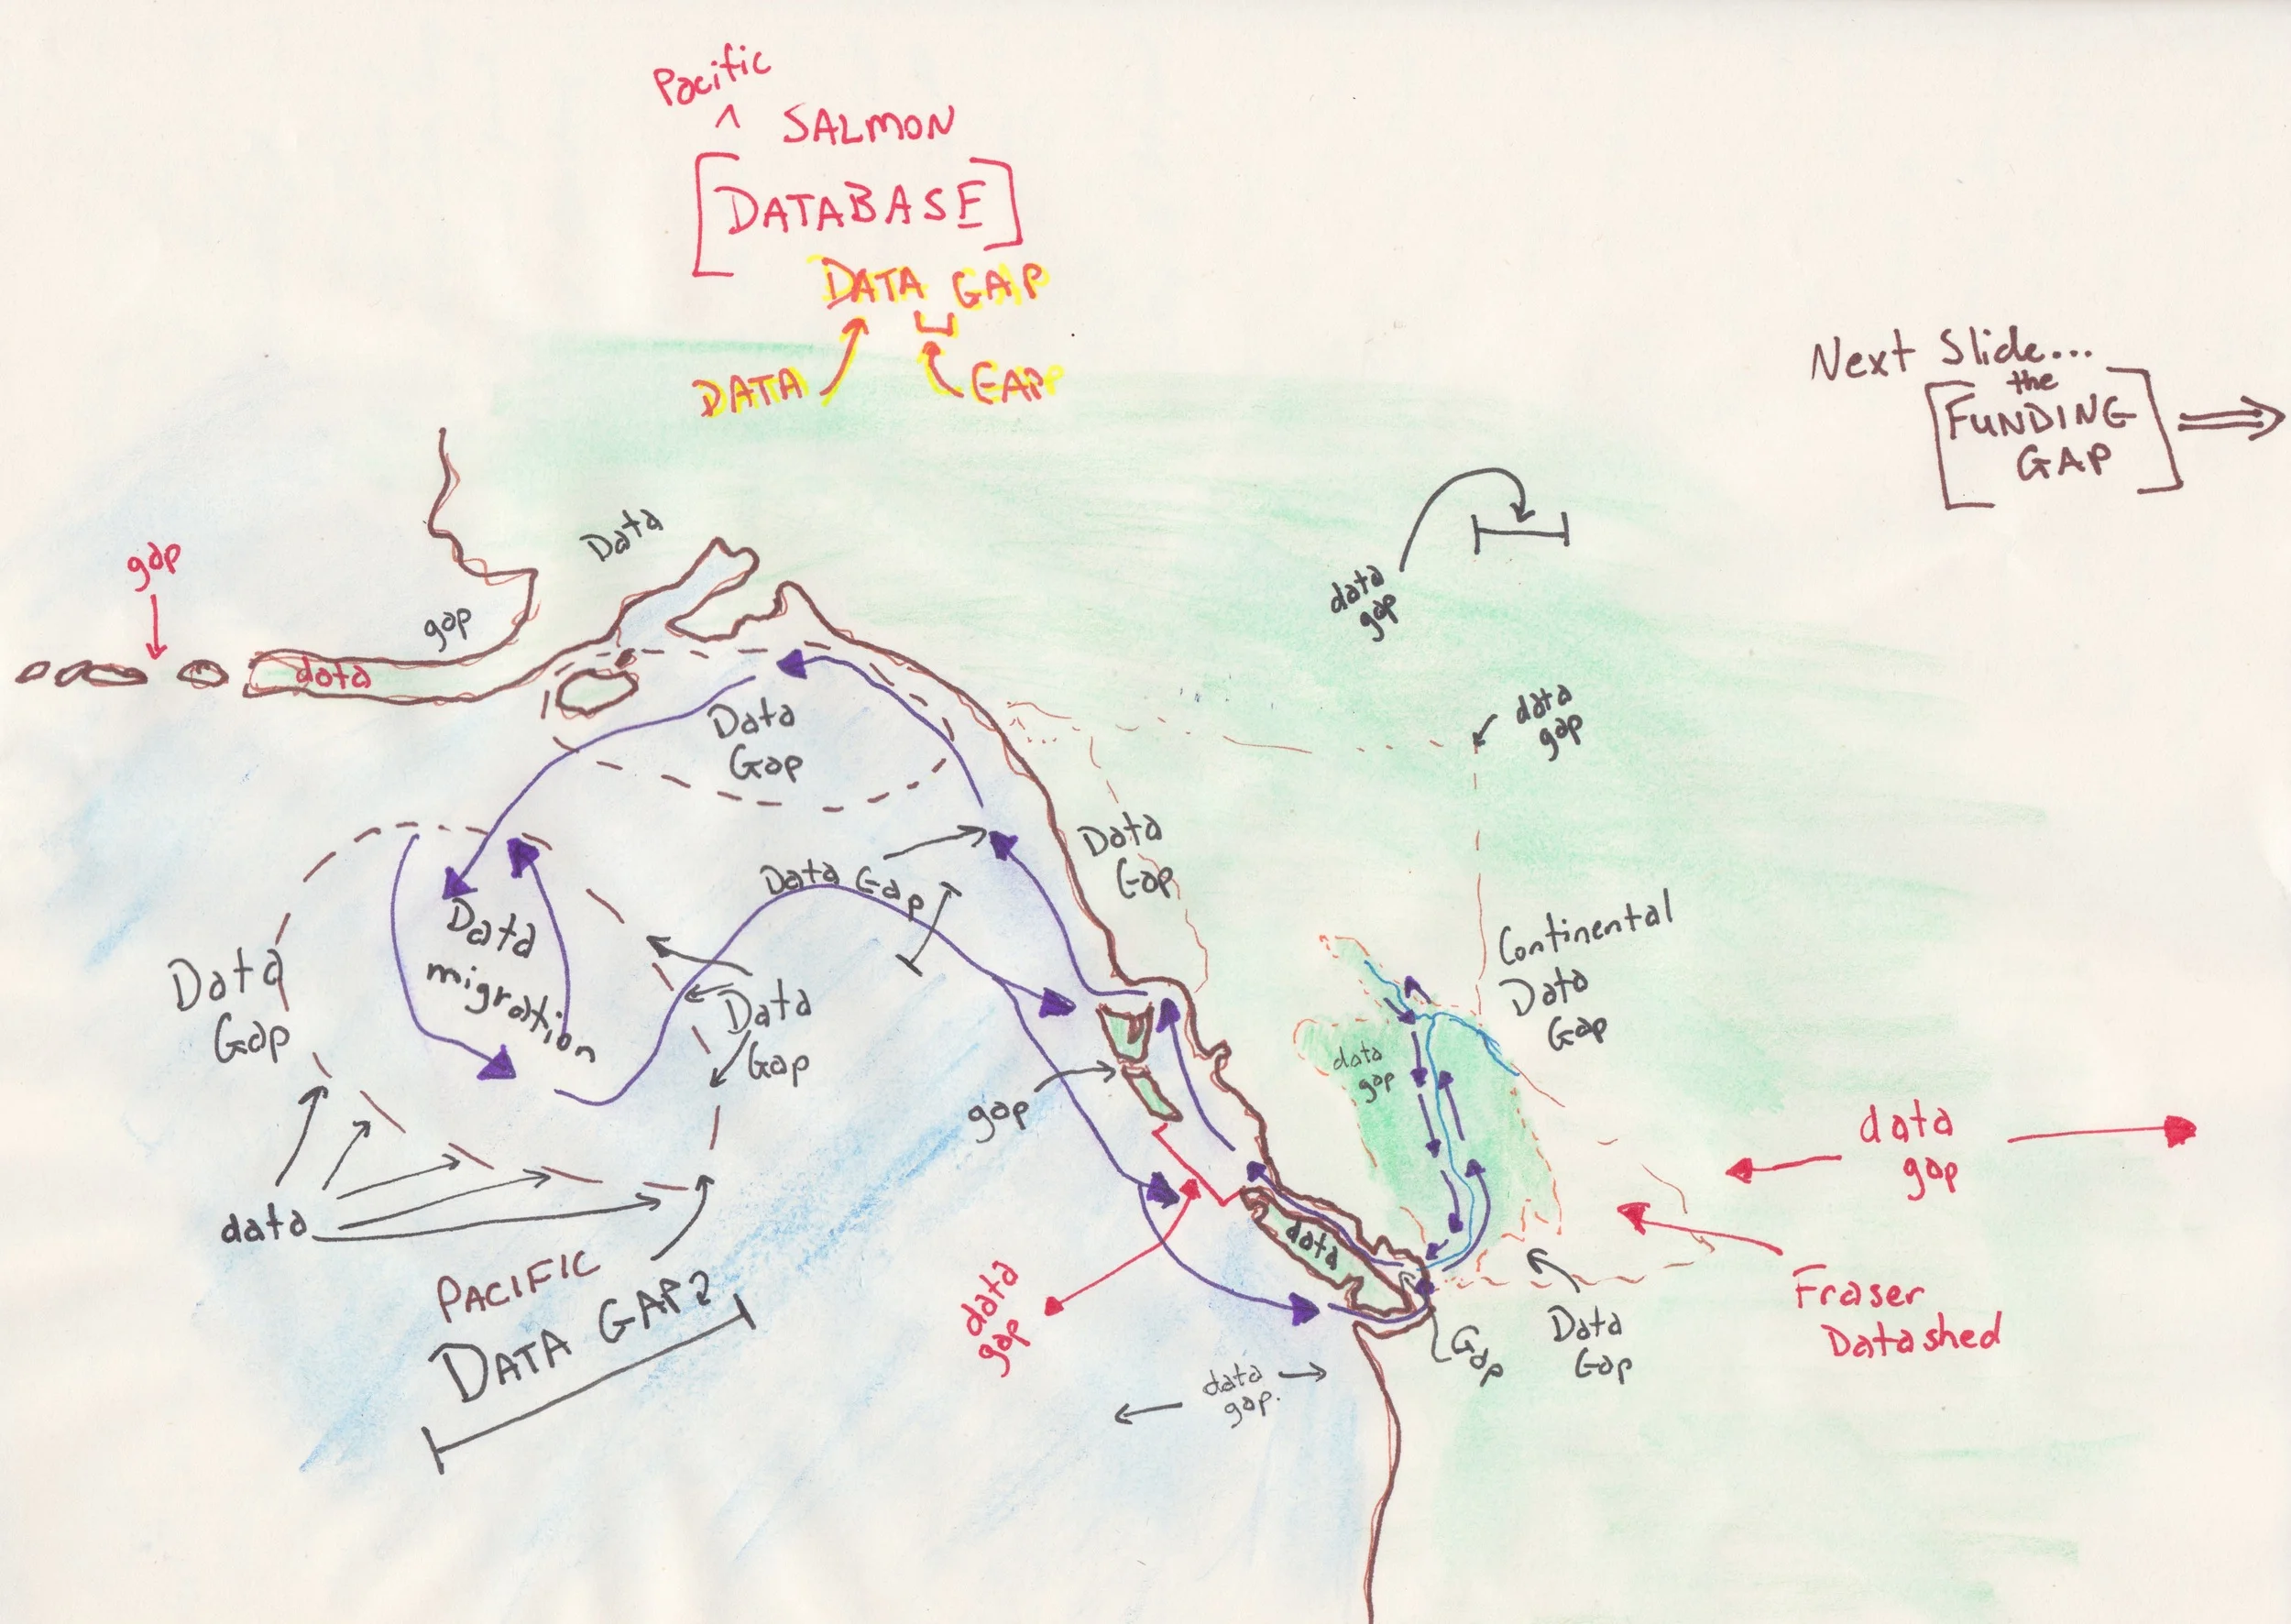 Pacific
^ SALMON
[DATABASE]
DATA GAP
DATA
GAP
Next Slide...
the
[FUNDING
GAP]
Data
gap
gap
data
data
gap
data
gap
Data
Gap
Data
Gap
Data Gap
Data
migration
Continental
Data
Gap
Data
Gap
Data
Gap
data
gap
gap
data
gap
data
PACIFIC
DATA GAP?
data
data
gap
Fraser
Datashed
Gap
Data
Gap
data
gap.